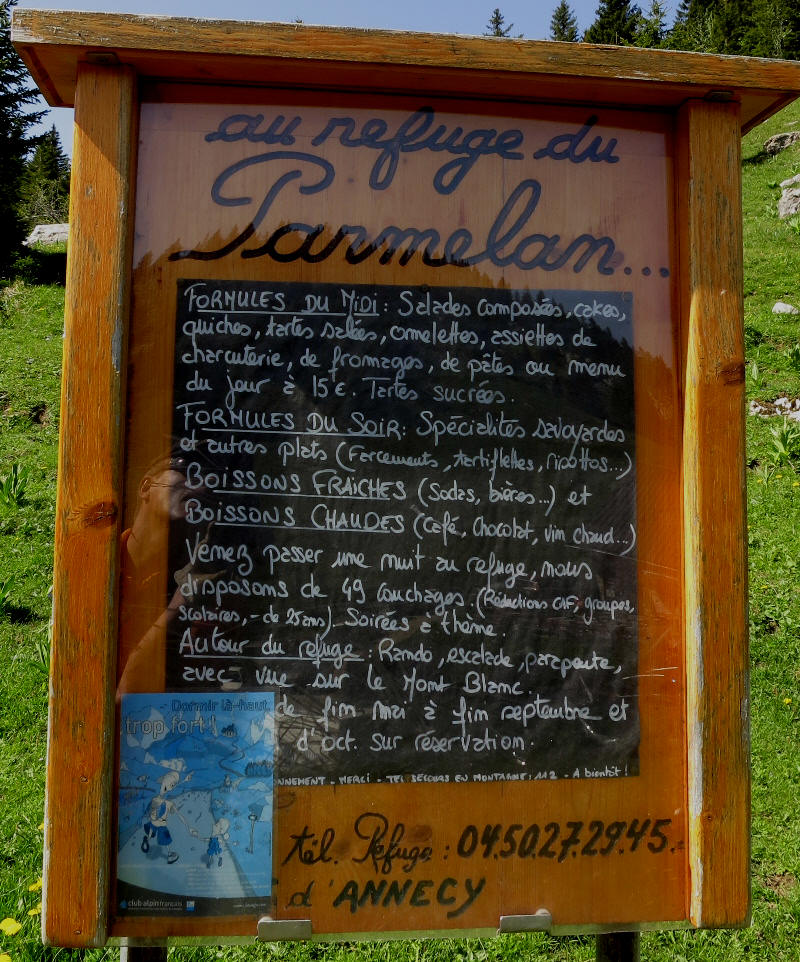 au refuge du
Parmelan...
FORMULES DU MIDI : Salades composées, cakes,
quiches, tartes salées, omelettes, assiettes de
charcuterie, de fromages, de pâtes ou menu
du jour à 15€. Tartes sucrées.
FORMULES DU SOIR: Spécialités savoyardes
et autres plats (Farcements, tartiflettes, risottos...)
BOISSONS FRAICHES (Sodas, bières...) et
BOISSONS CHAUDES (Café, Chocolat, vin chaud...)
Venez passer une nuit au refuge, nous
disposons de 49 couchages. (Réductions CAF, groupes,
scolaires, - de 25 ans). Soirées à thème.
Autour du refuge : Rando, escalade, parapente,
avec vue sur le Mont Blanc.
de fin mai à fin septembre et
d'oct. sur réservation.
NNEMENT - MERCI - TEL SECOURS EN MONTAGNE : 112 - A bientôt !
Dormir là-haut
trop fort !
club alpin français
tél. Refuge : 04.50.27.29.45.
d'ANNECY